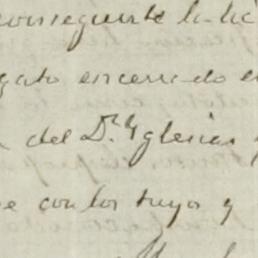 conseguente la
gato encerrado e
del Dr. Yglesias
e con los suyos y